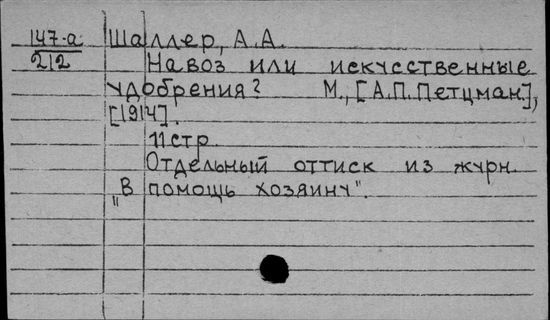 147-а Шаллер, А.А.
212 Навоз или искусственные
удобрения? М., [А.П. Петцман],
[1914].
11 стр.
Отдельный оттиск из журн.
"В помощь хозяину".